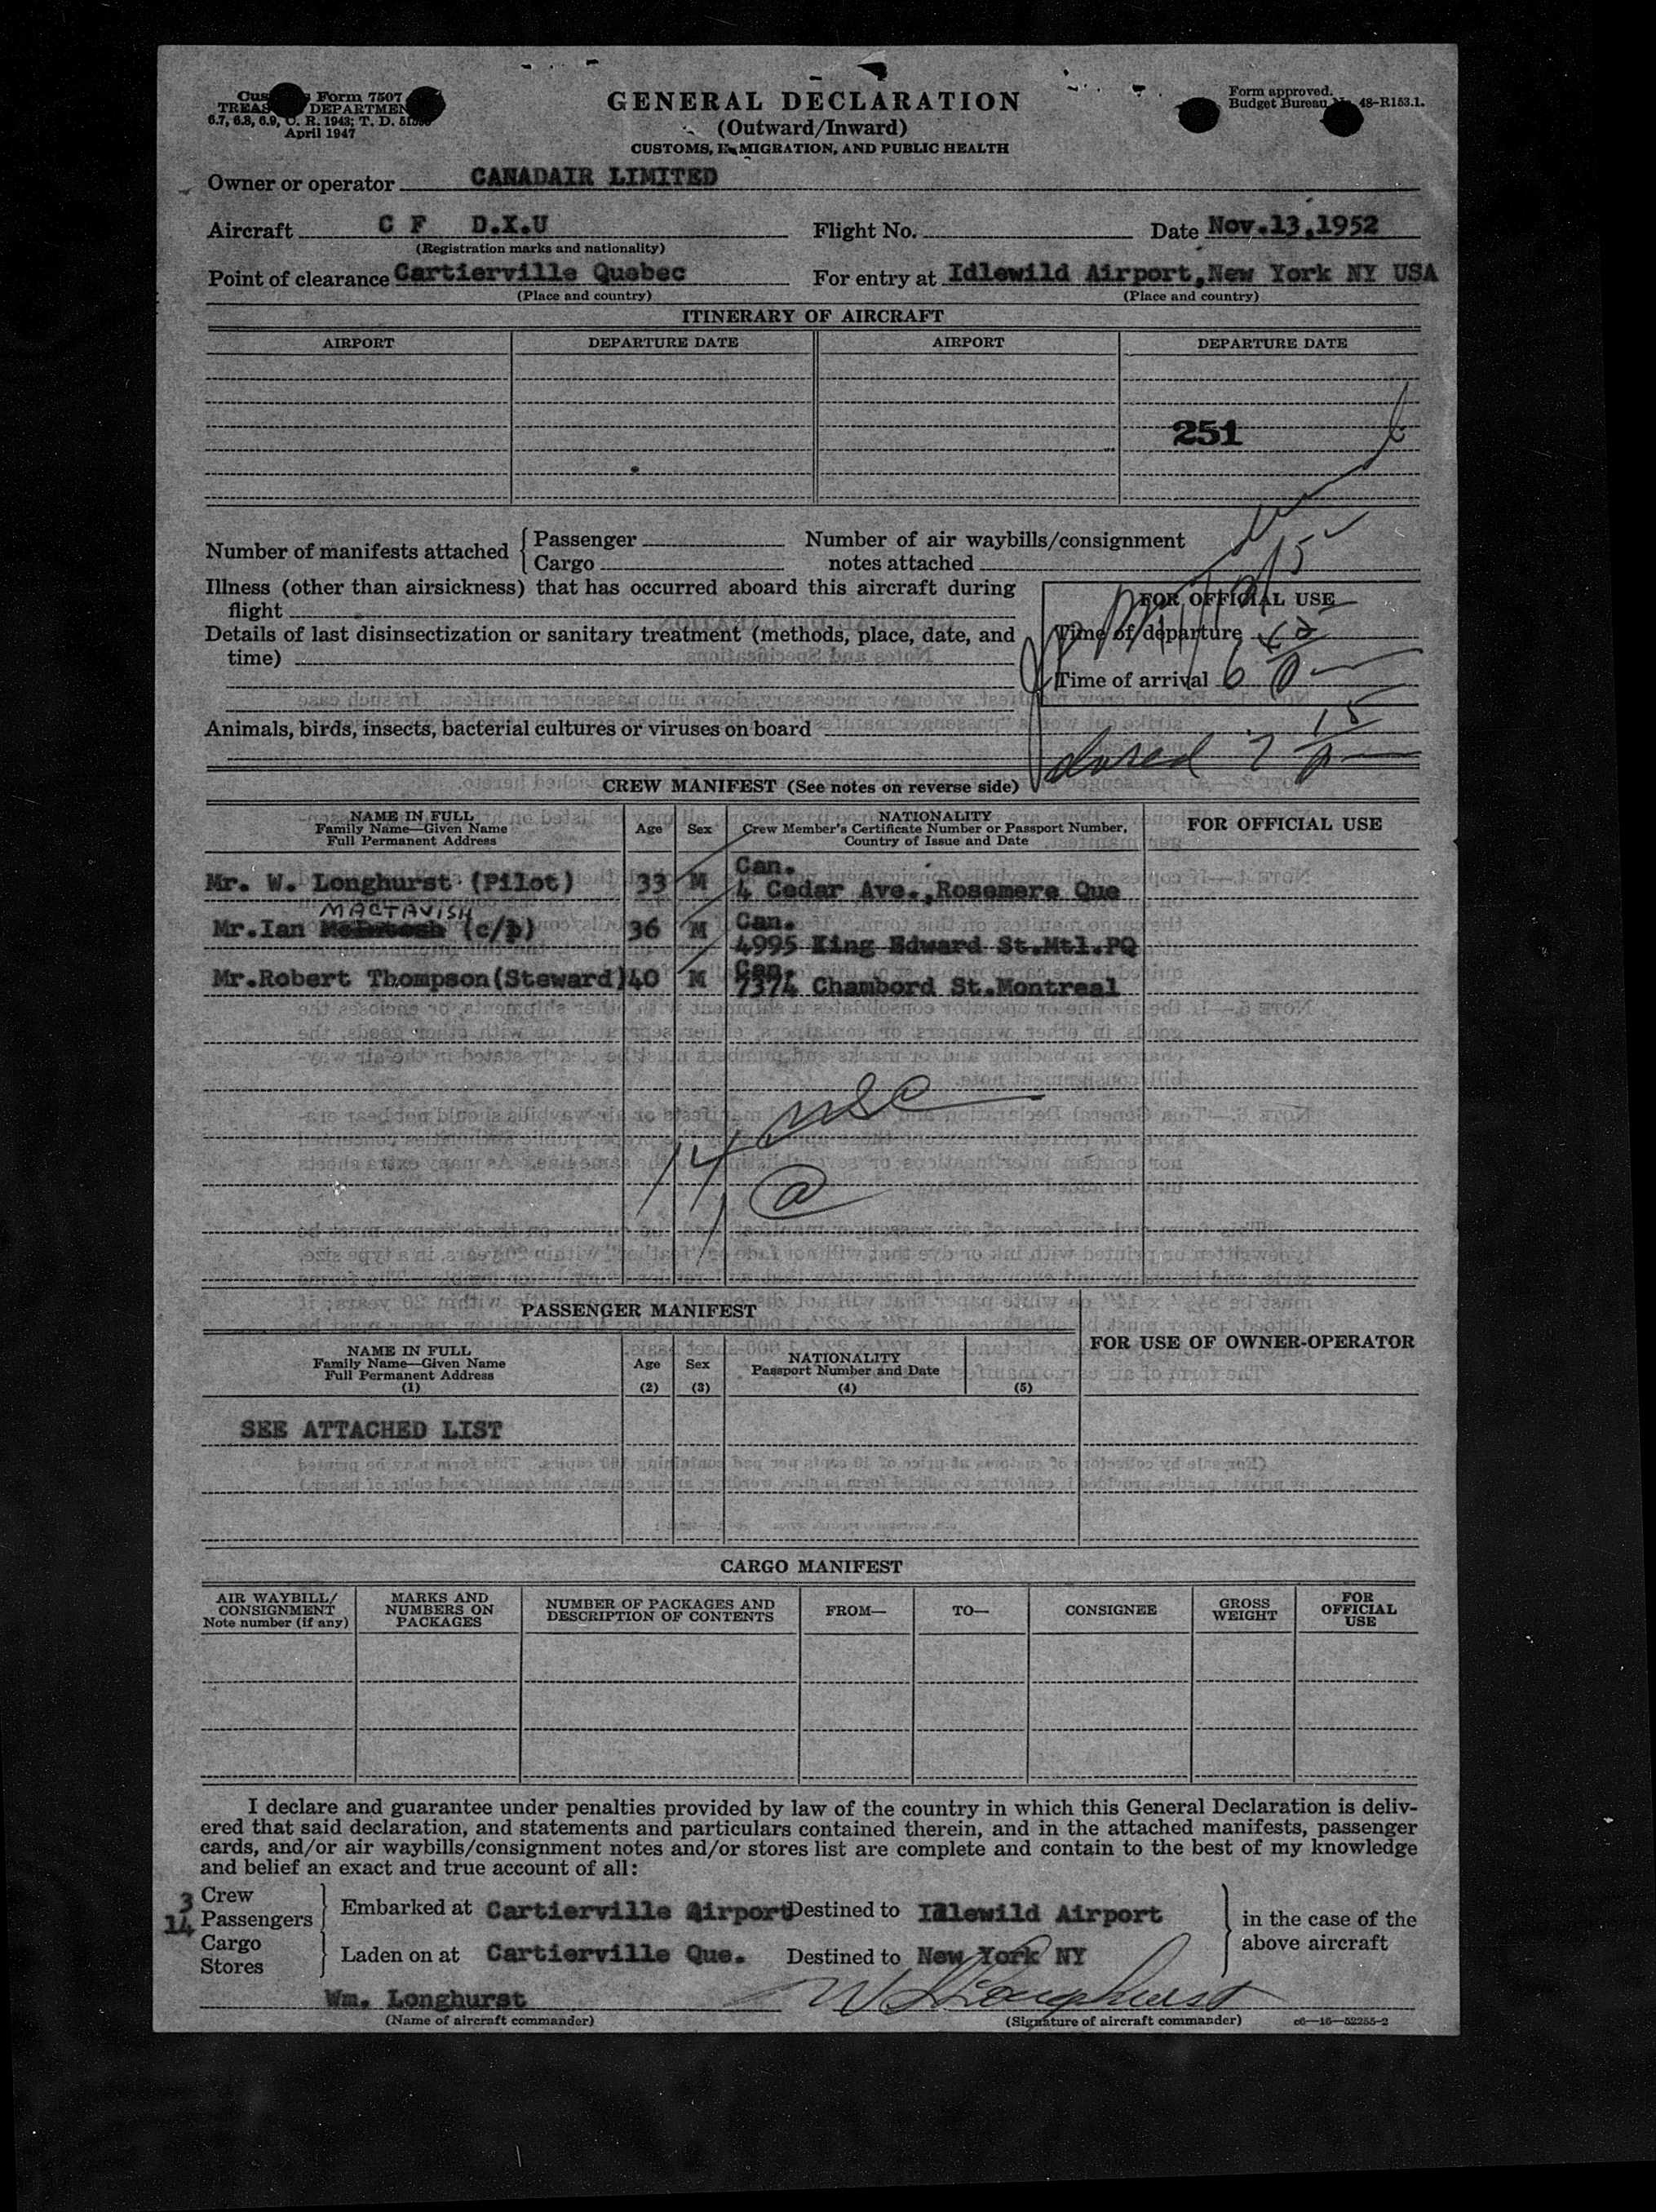 Customs Form 7507
TREASURY DEPARTMENT
6.7, 6.8, 6.9, C. R. 1943; T. D.
April 1947
GENERAL DECLARATION
(Outward/Inward)
CUSTOMS, IMMIGRATION, AND PUBLIC HEALTH
Form approved.
Budget Bureau No. 48-R153.1.
Owner or operator CANADAIR LIMITED
Aircraft C F D.X.U Flight No. Date Nov.13,1952
(Registration marks and nationality)
Point of clearance Cartierville Quebec For entry at Idlewild Airport,New York NY USA
(Place and country) (Place and country)
ITINERARY OF AIRCRAFT
AIRPORT DEPARTURE DATE AIRPORT DEPARTURE DATE
251
Number of manifests attached Passenger Number of air waybills/consignment
Cargo notes attached
Illness (other than airsickness) that has occurred aboard this aircraft during
flight
FOR OFFICIAL USE
Details of last disinsectization or sanitary treatment (methods, place, date, and
time)
Time of departure
Time of arrival 6
Animals, birds, insects, bacterial cultures or viruses on board
7 15
CREW MANIFEST (See notes on reverse side)
NAME IN FULL
Family Name—Given Name
Full Permanent Address
Age Sex
NATIONALITY
Crew Member's Certificate Number or Passport Number,
Country of Issue and Date
FOR OFFICIAL USE
Can.
Mr. W. Longhurst (Pilot) 33 M 4 Cedar Ave.,Rosemere Que
MACTAVISH
Can.
Mr.Ian McIntosh (c/p) 36 M 4995 King Edward St.Mtl.PQ
Can.
Mr.Robert Thompson(Steward)40 M 7374 Chambord St.Montreal
14 USC
PASSENGER MANIFEST
NAME IN FULL
Family Name—Given Name
Full Permanent Address
(1)
Age
(2)
Sex
(3)
NATIONALITY
Passport Number and Date
(4) (5)
FOR USE OF OWNER-OPERATOR
SEE ATTACHED LIST
CARGO MANIFEST
AIR WAYBILL/
CONSIGNMENT
Note number (if any)
MARKS AND
NUMBERS ON
PACKAGES
NUMBER OF PACKAGES AND
DESCRIPTION OF CONTENTS
FROM— TO— CONSIGNEE
GROSS
WEIGHT
FOR
OFFICIAL
USE
I declare and guarantee under penalties provided by law of the country in which this General Declaration is deliv-
ered that said declaration, and statements and particulars contained therein, and in the attached manifests, passenger
cards, and/or air waybills/consignment notes and/or stores list are complete and contain to the best of my knowledge
and belief an exact and true account of all:
3 Crew
14 Passengers
Cargo
Stores
Embarked at Cartierville Airport Destined to Idlewild Airport
Laden on at Cartierville Que. Destined to New York NY
in the case of the
above aircraft
Wm. Longhurst W Longhurst
(Name of aircraft commander) (Signature of aircraft commander) c6—16—52255-2